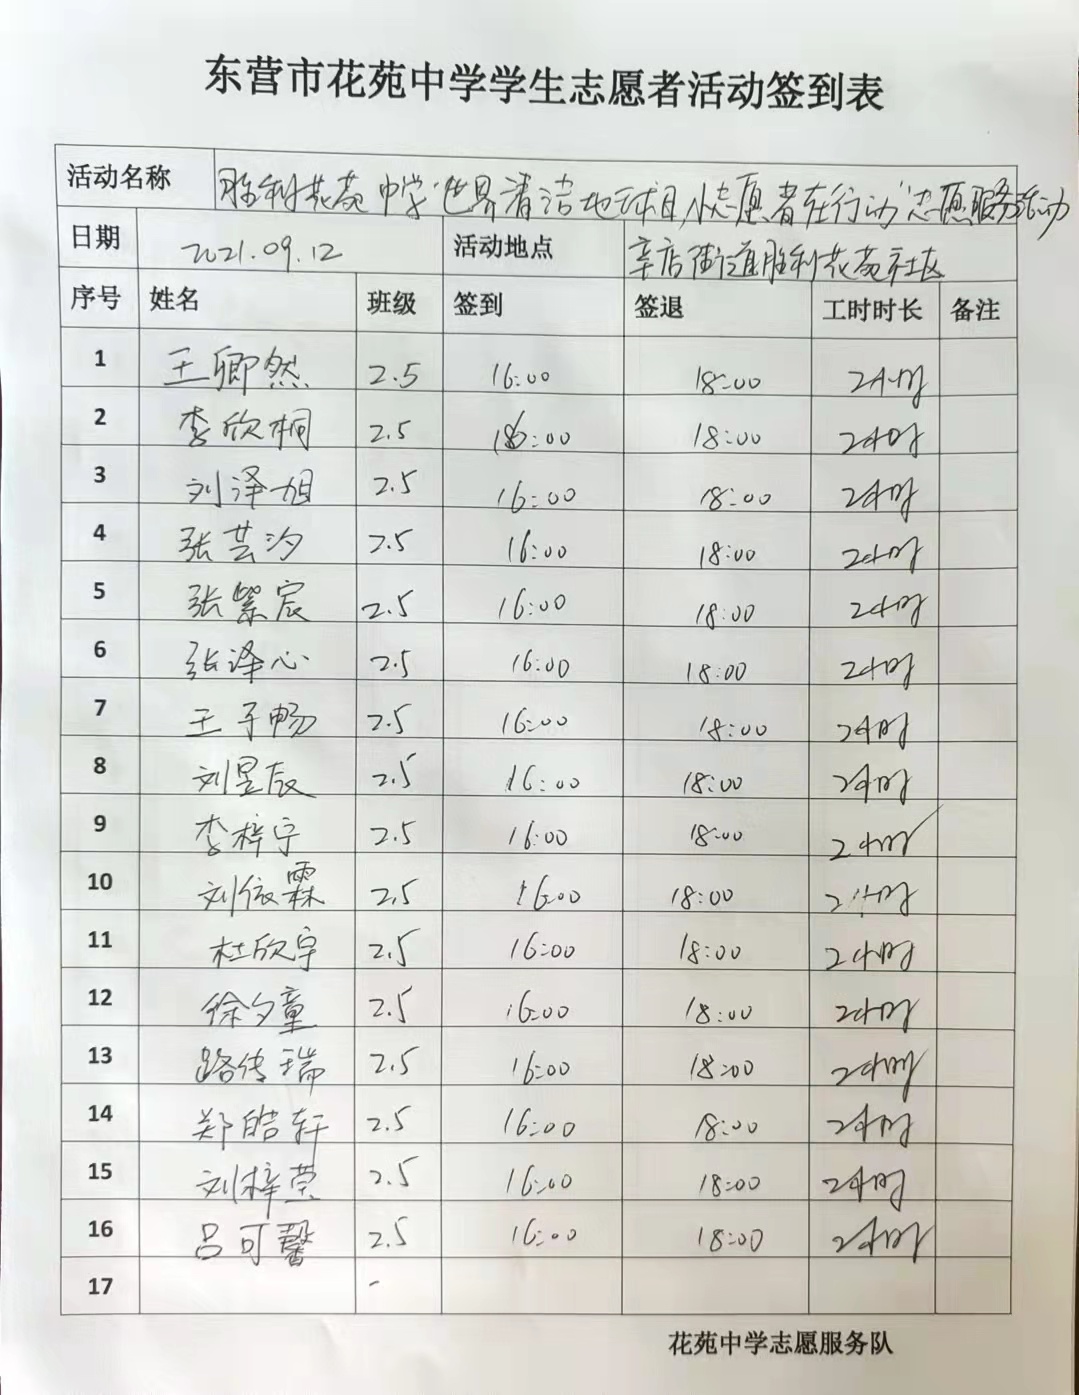 东营市花苑中学学生志愿者活动签到表
活动名称 胜利花苑中学“世界清洁地球日,小志愿者在行动”志愿服务活动
日期 2021.09.12 活动地点 辛店街道胜利花苑社区
序号 姓名 班级 签到 签退 工时时长 备注
1 王卿然 2.5 16:00 18:00 2小时
2 李欣桐 2.5 16:00 18:00 2小时
3 刘泽旭 2.5 16:00 18:00 2小时
4 张芸汐 2.5 16:00 18:00 2小时
5 张紫宸 2.5 16:00 18:00 2小时
6 张泽心 2.5 16:00 18:00 2小时
7 王子畅 2.5 16:00 18:00 2小时
8 刘昱辰 2.5 16:00 18:00 2小时
9 李梓宁 2.5 16:00 18:00 2小时
10 刘依霖 2.5 16:00 18:00 2小时
11 杜欣宇 2.5 16:00 18:00 2小时
12 徐夕童 2.5 16:00 18:00 2小时
13 路传瑞 2.5 16:00 18:00 2小时
14 郑皓轩 2.5 16:00 18:00 2小时
15 刘梓萱 2.5 16:00 18:00 2小时
16 吕可馨 2.5 16:00 18:00 2小时
17
花苑中学志愿服务队